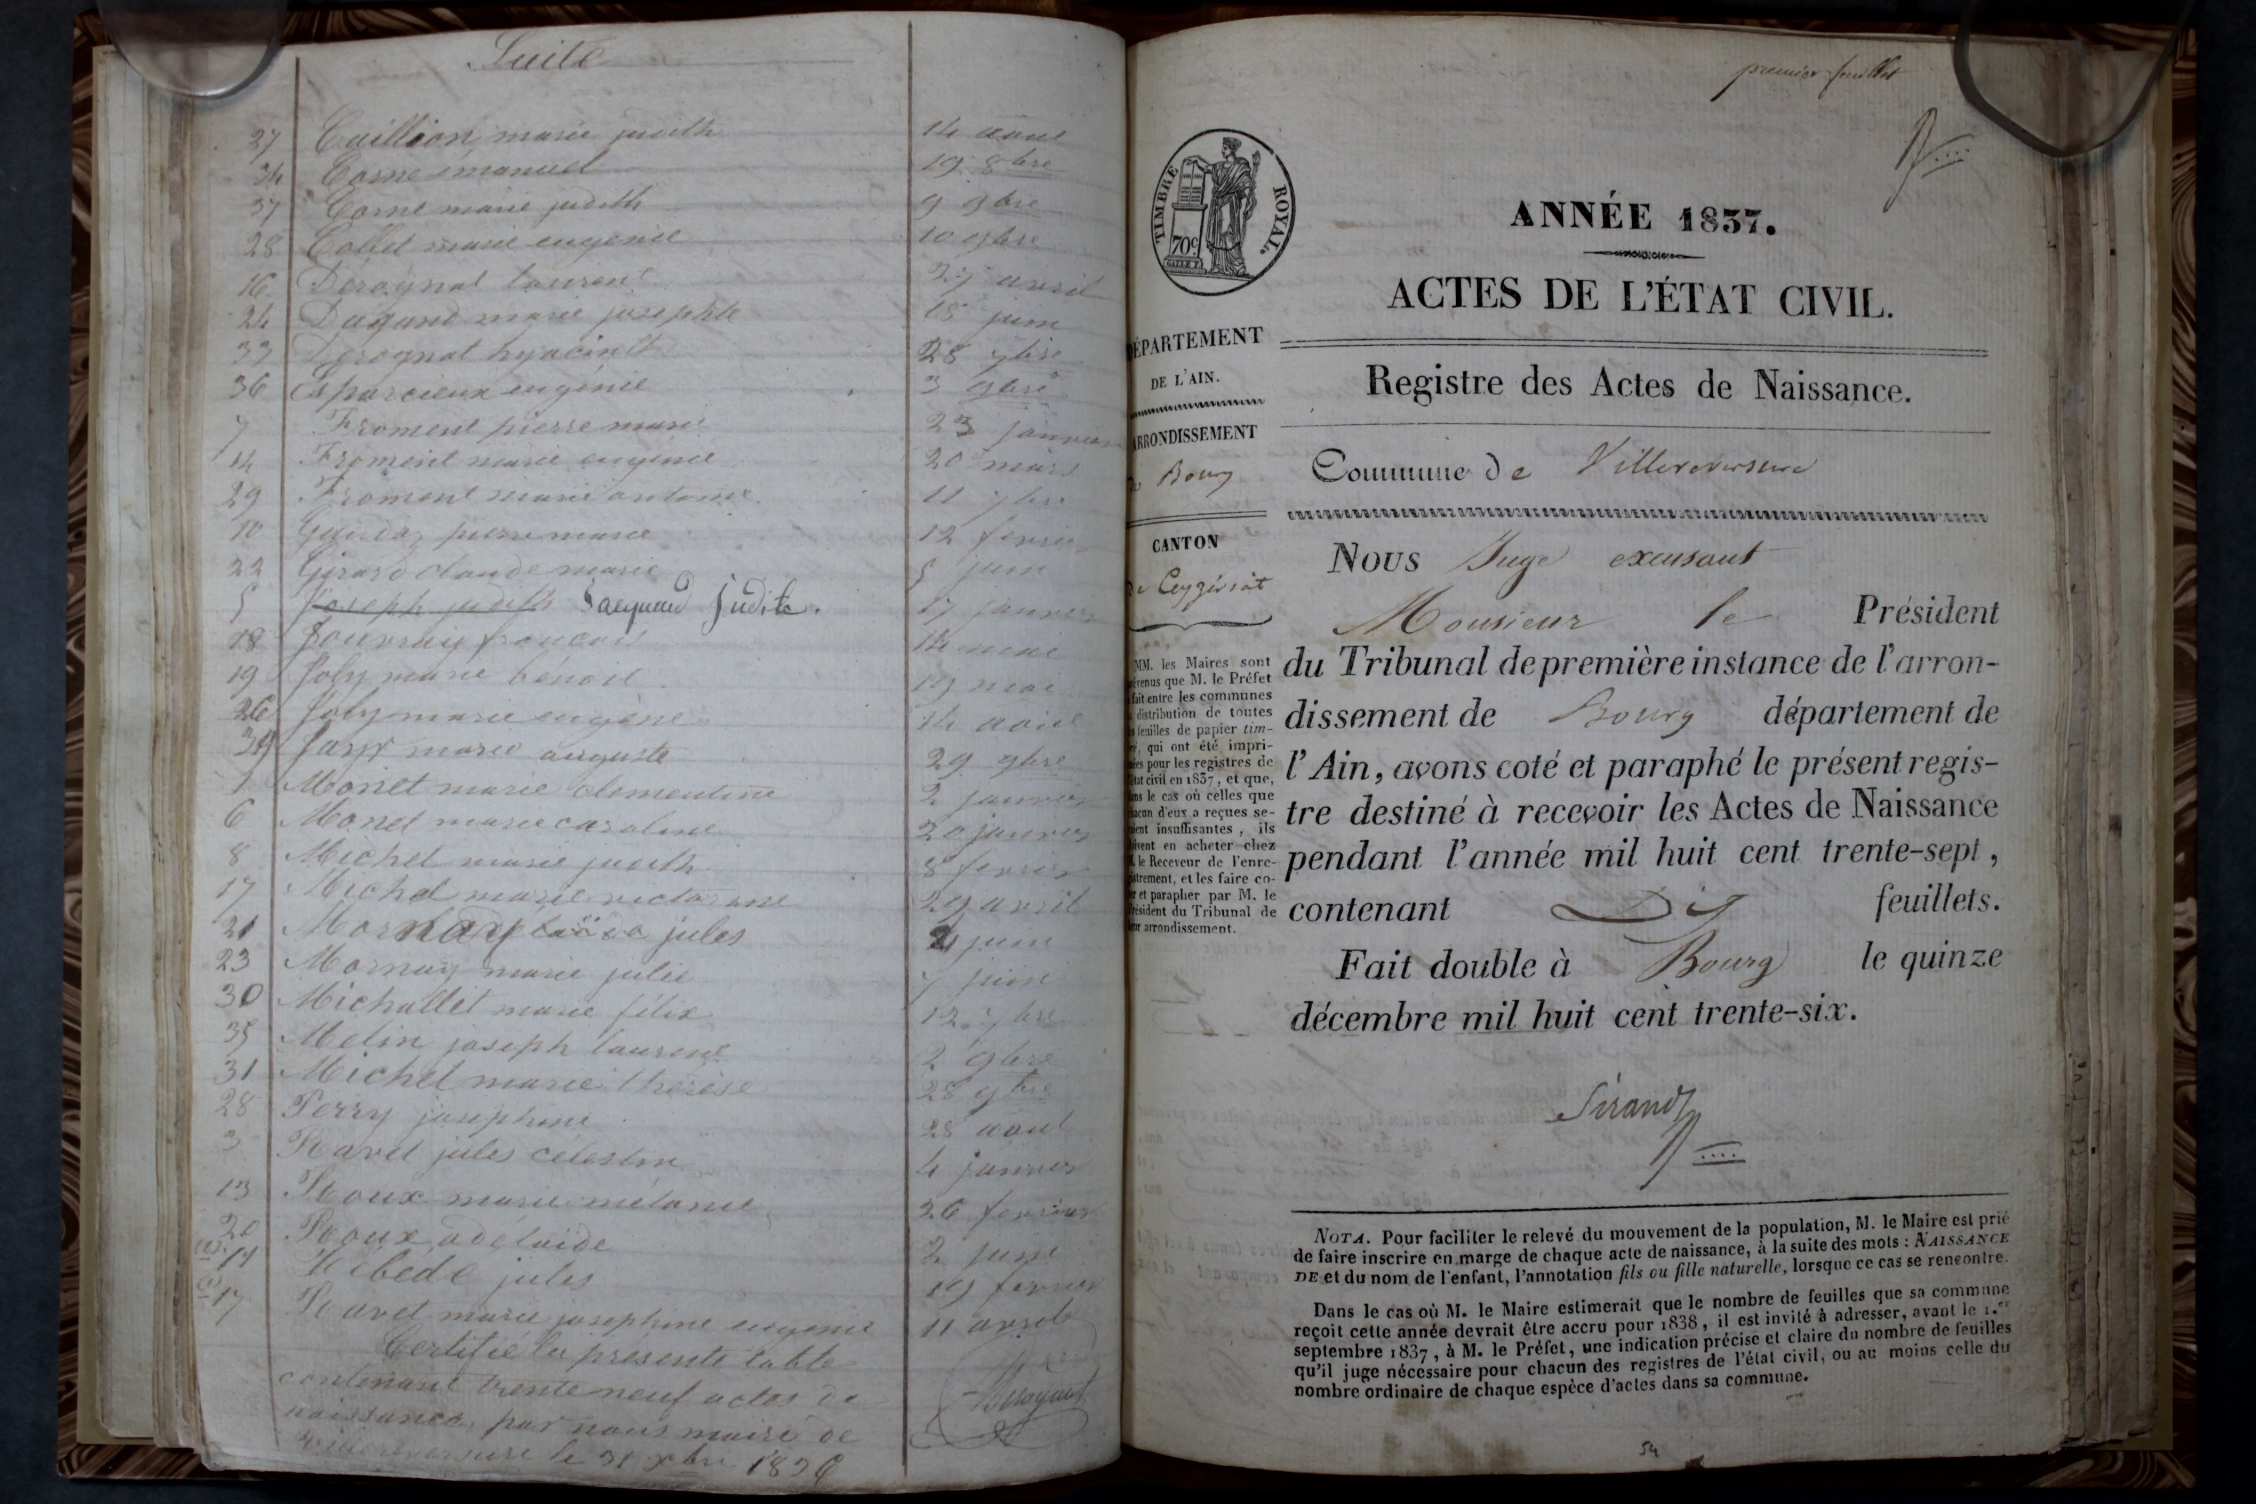 Suite
27 Cuillion marie judith 14 aout
34 Corne émanuel 19 8bre
37 Corne marie judith 9 9bre
28 Collet marie eugénie 10 9bre
16 Derognat laurent 27 avril
24 Dagand marie josephte 18 juin
33 Derognat hyacinth 28 7bre
36 Esparcieux eugénie 3 9bre
7 Froment pierre marie 23 janvier
14 Froment marie eugénie 20 mars
29 Froment marie antoine 11 7bre
10 pierre marie 12 fevrier
22 Girard claude marie 5 juin
5 Joseph judith Jacquand Judite. 17 janvier
18 Jouvray francois 14 mai
19 Joly marie bénoit 19 mai
26 Joly marie eugène 14 aout
39 marie auguste 29 9bre
1 Monet marie clementine 2 janvier
6 Monet marie caroline 20 janvier
8 Michel marie judith 8 fevrier
17 Michel marie victorine 29 avril
21 Mornay jules 4 juin
23 Mornay marie julie 7 juin
30 Michallet marie félix 12 7bre
35 Melin joseph laurent 2 9bre
31 Michel marie thérèse 28 7bre
28 Perry josephine 28 aout
3 Ravet jules célestin 4 janvier
13 Roux marie mélanie 26 fevrier
20 Roux adélaide 2 juin
11 jules 19 fevrier
17 Ravet marie josephine eugenie 11 avril
Certifié la presente table
contenant trente neuf actes de
naissance, par nous maire de
Villereversure le 31 xbre 1836
Derognat
premier feuillet
TIMBRE ROYAL.
70c.
ANNÉE 1837.
ACTES DE L'ÉTAT CIVIL.
DÉPARTEMENT
DE L'AIN.
Registre des Actes de Naissance.
ARRONDISSEMENT
de Bourg
Commune de Villereversure
CANTON
de Ceyzériat
Nous Juge excusant
Monsieur le Président
du Tribunal de première instance de l'arron-
dissement de Bourg département de
l'Ain, avons coté et paraphé le présent regis-
tre destiné à recevoir les Actes de Naissance
pendant l'année mil huit cent trente-sept,
contenant Dix feuillets.
Fait double à Bourg le quinze
décembre mil huit cent trente-six.
MM. les Maires sont
prévenus que M. le Préfet
a fait entre les communes
la distribution de toutes
les feuilles de papier tim-
bré, qui ont été impri-
mées pour les registres de
l'état civil en 1837, et que,
dans le cas où celles que
chacun d'eux a reçues se-
raient insuffisantes, ils
doivent en acheter chez
M. le Receveur de l'enre-
gistrement, et les faire co-
ter et parapher par M. le
Président du Tribunal de
leur arrondissement.
Sirand
NOTA. Pour faciliter le relevé du mouvement de la population, M. le Maire est prié
de faire inscrire en marge de chaque acte de naissance, à la suite des mots : NAISSANCE
DE et du nom de l'enfant, l'annotation fils ou fille naturelle, lorsque ce cas se rencontre.
Dans le cas où M. le Maire estimerait que le nombre de feuilles que sa commune
reçoit cette année devrait être accru pour 1838, il est invité à adresser, avant le 1.er
septembre 1837, à M. le Préfet, une indication précise et claire du nombre de feuilles
qu'il juge nécessaire pour chacun des registres de l'état civil, ou au moins celle du
nombre ordinaire de chaque espèce d'actes dans sa commune.
54